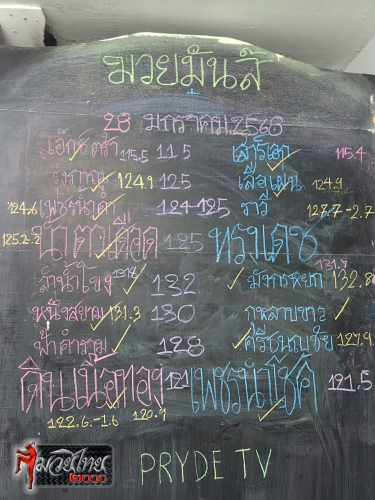 มวยมันส์
28 มกราคม 2568
เอ็กซ์ตร้า 115.5 115 เสาร์เอก 115.4
124.9 125 124.9
124.6 เพชรน้ำดำ 124-125 ราวี 127.7-2.7
125.2-.2 น้ำตาเดือด 125 ทรงเดช
ลำน้ำโขง 131.8 132 มังกรหยก 131.9 132.8
หนึ่งสยาม 131.3 130 กุหลาบขาว
128 ศรีธนญชัย 127.9
ดินเนื้อทอง 121 เพชรน้ำโชติ 121.5
122.6-1.6 120.9
มวยไทย
2000
PRYDE TV